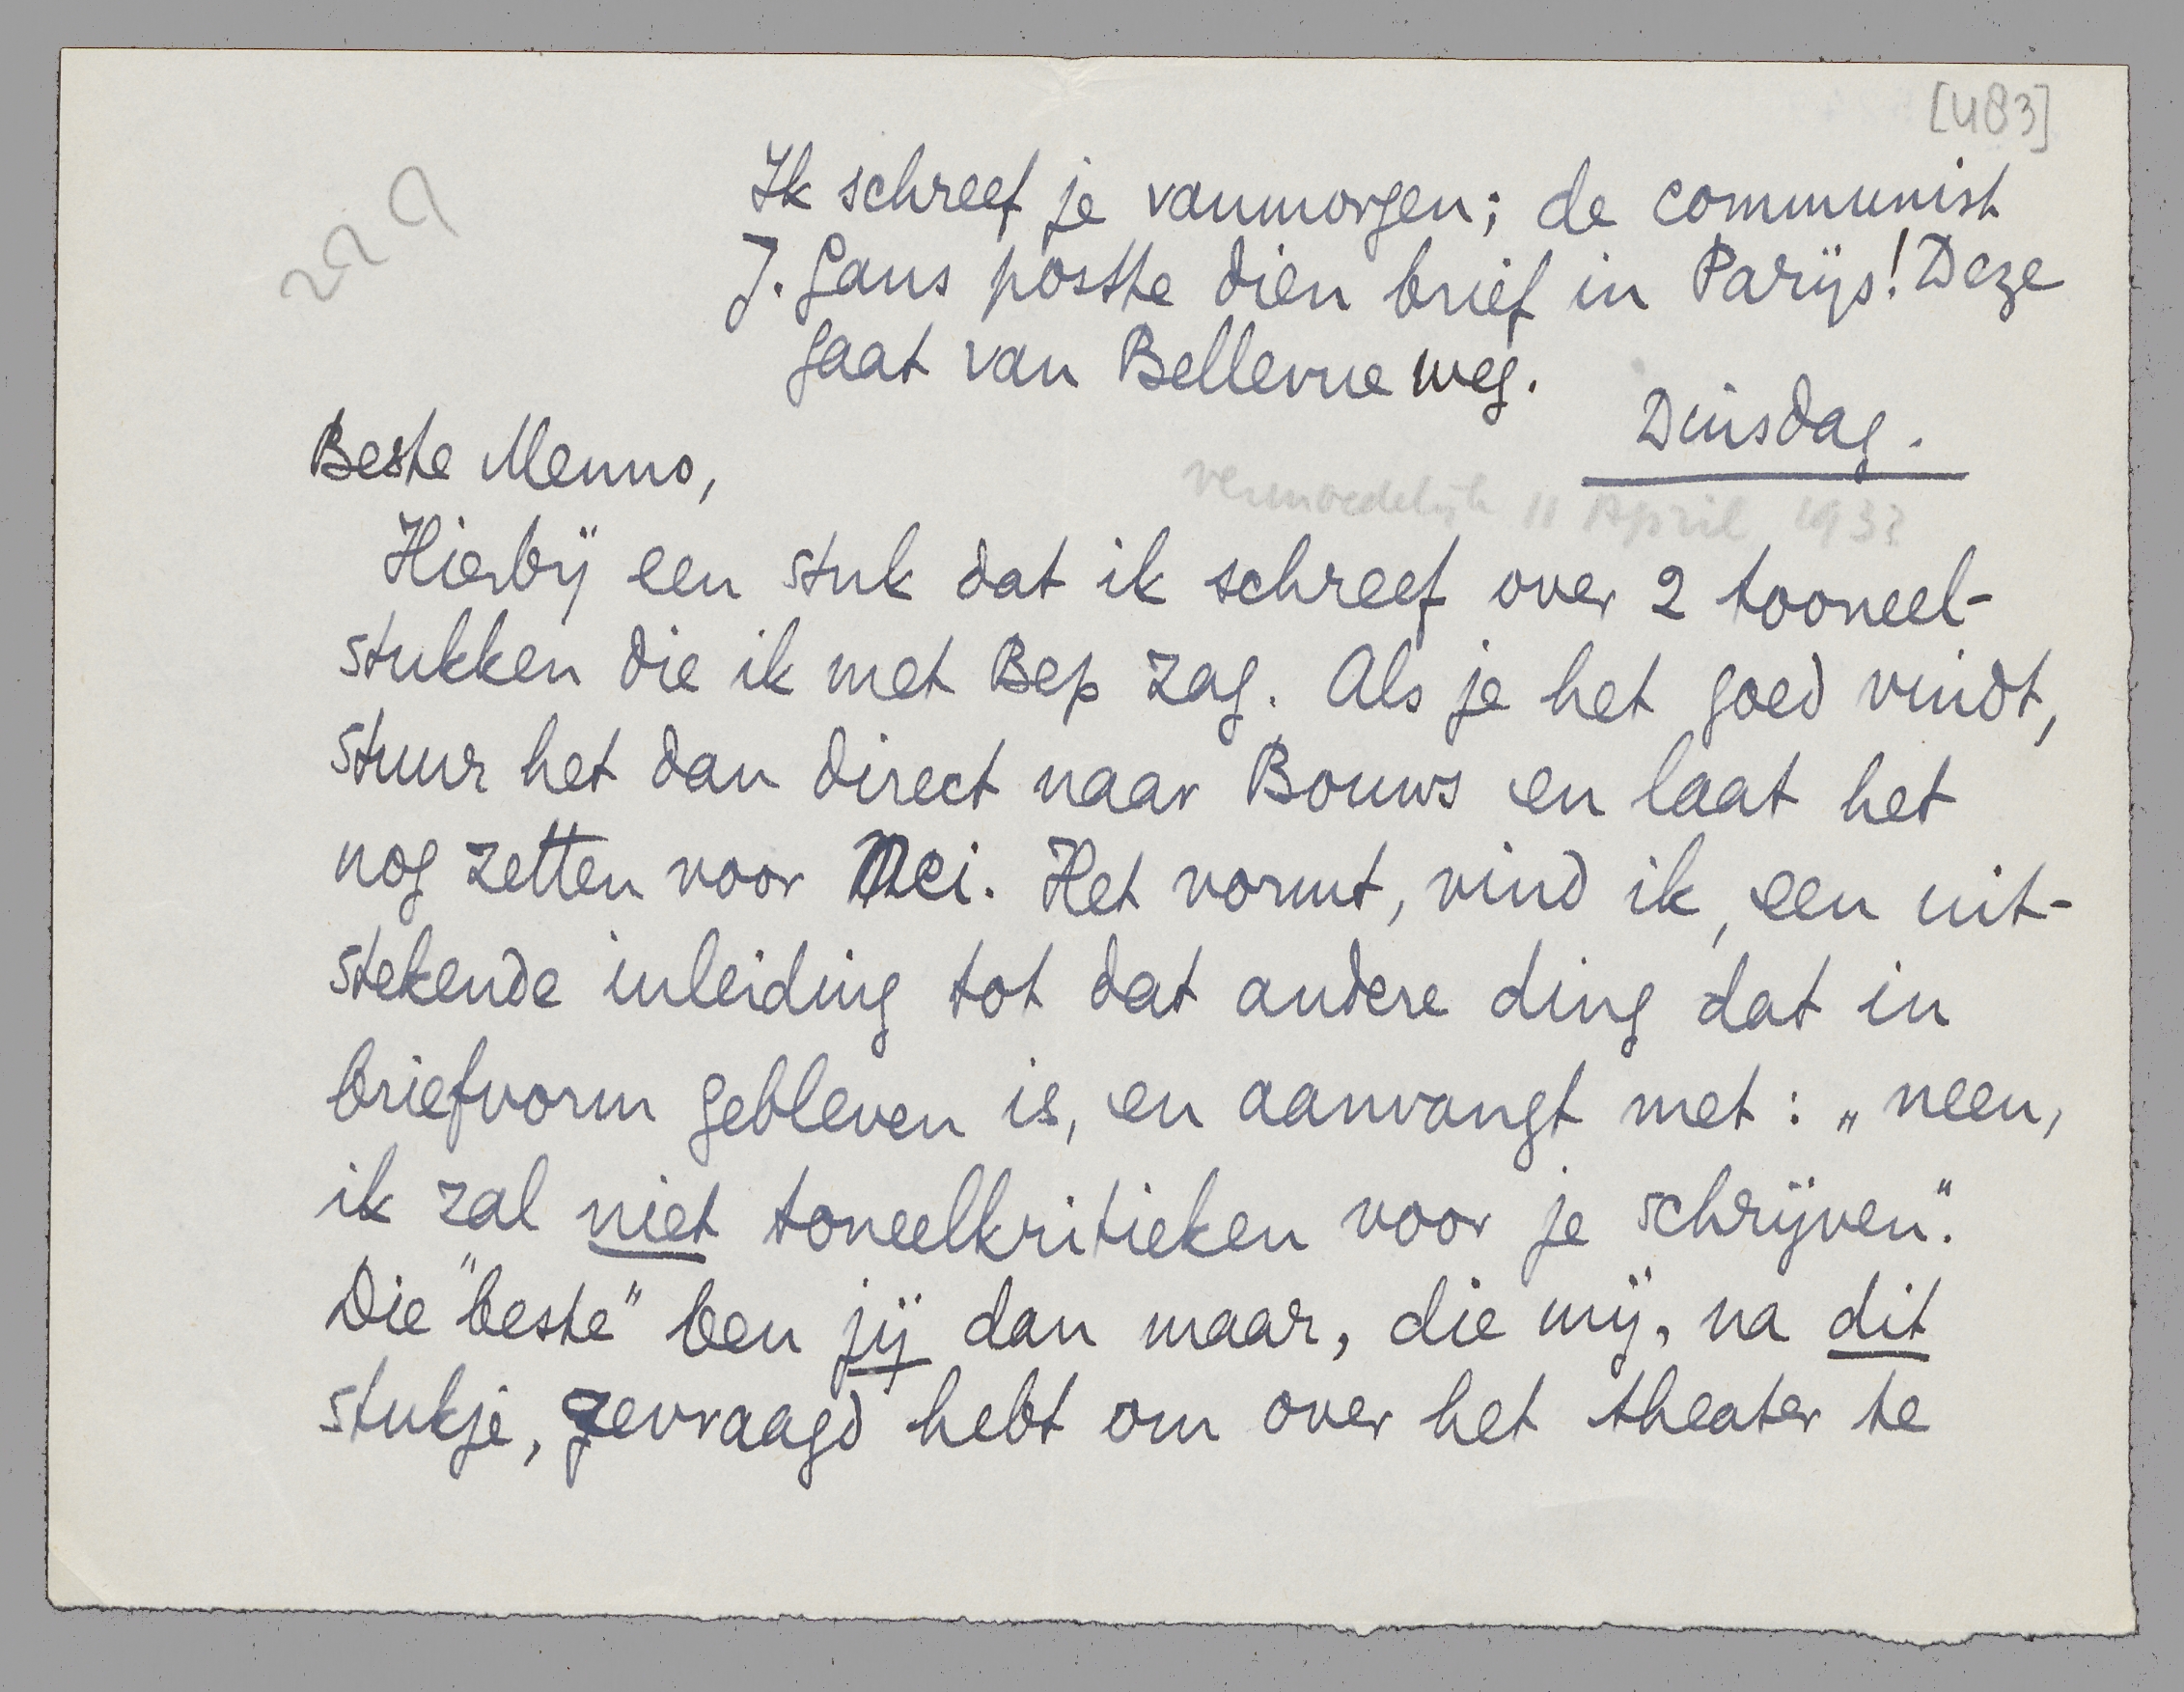 [483]
229
Ik schreef je vanmorgen; de communist
J. Gans postte dien brief in Parijs! Deze
gaat van Bellevue weg.
Dinsdag.
Beste Menno,
vermoedelijk 11 April 193?
Hierbij een stuk dat ik schreef over 2 tooneel-
stukken die ik met Bep zag. Als je het goed vindt,
stuur het dan direct naar Bouws en laat het
nog zetten voor Mei. Het vormt, vind ik, een uit-
stekende inleiding tot dat andere ding dat in
briefvorm gebleven is, en aanvangt met: „neen,
ik zal niet toneelkritieken voor je schrijven".
Die "beste" ben jij dan maar, die mij, na dit
stukje, gevraagd hebt om over het theater te